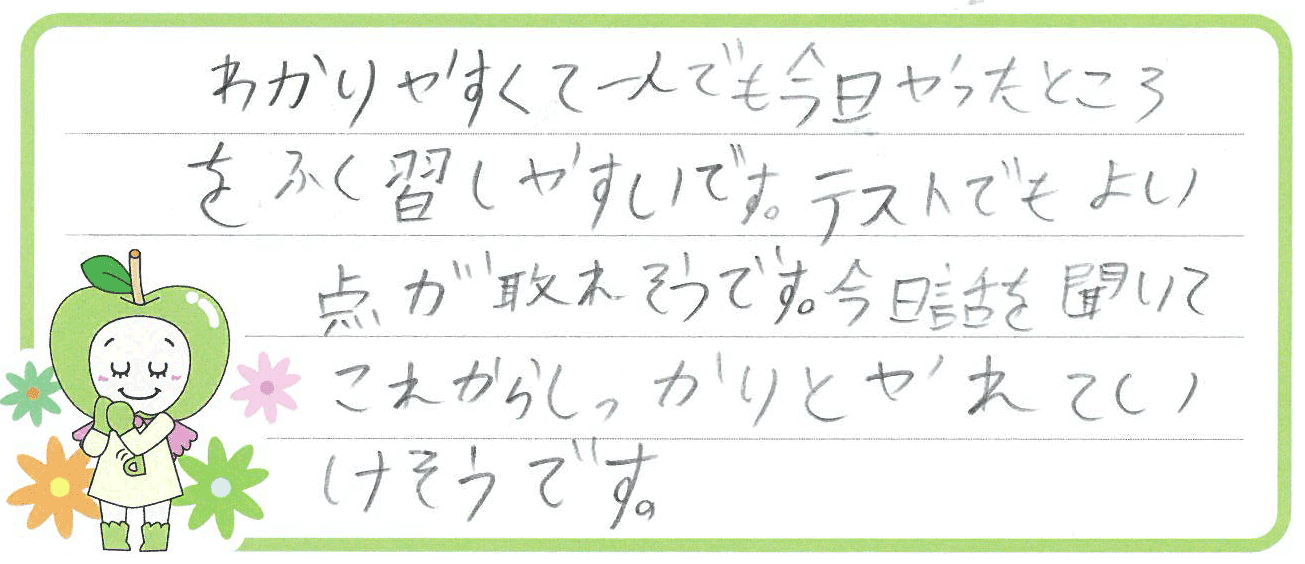 わかりやすくて一人でも今日やったところ
をふく習しやすいです。テストでもよい
点が取れそうです。今日話を聞いて
これからしっかりとやれてい
けそうです。